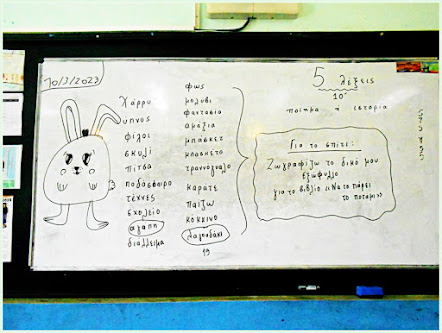 10/3/2023
Χάρρυ
ύπνος
φίλοι
σκυλί
πίτσα
ποδόσφαιρο
τέχνες
σχολείο
αγάπη
διάλλειμα
φως
μολύβι
φαντασία
αμάξια
μπάσκετ
καράτε
παίζω
κόκκινο
λαγουδάκι
19
5 λέξεις
10'
ποίημα ή ιστορία
Για το σπίτι:
Ζωγραφίζω το δικό μου
εξώφυλλο
για το βιβλίο «Να το πάρει
το ποτάμι»